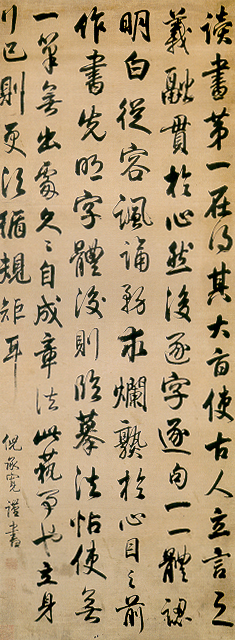 读书第一在得其大旨使古人立言之
義融貫於心然後逐字逐句一一體認
明白從容諷誦務求爛熟於心目之前
作書先明字體後則臨摹法帖使無
一筆無出處久之自成章法此藝事也立身
行已則更須循規矩耳
倪承寬謹書